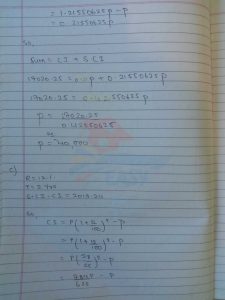 = 1.21550625 p - p
= 0.21550625 p
So,
Sum = CI + SCI
17020.25 = 0.21p + 0.21550625 p
17020.25 = 0.42550625 p
p = 17020.25
0.42550625
∴ p = 40,000
c)
R = 12%
T = 2 yrs
So,
CI = P(1 + 12/100)² - P
= P(1 + 12/100)² - P
= P(28/25)² - P
= 784P/625 - P